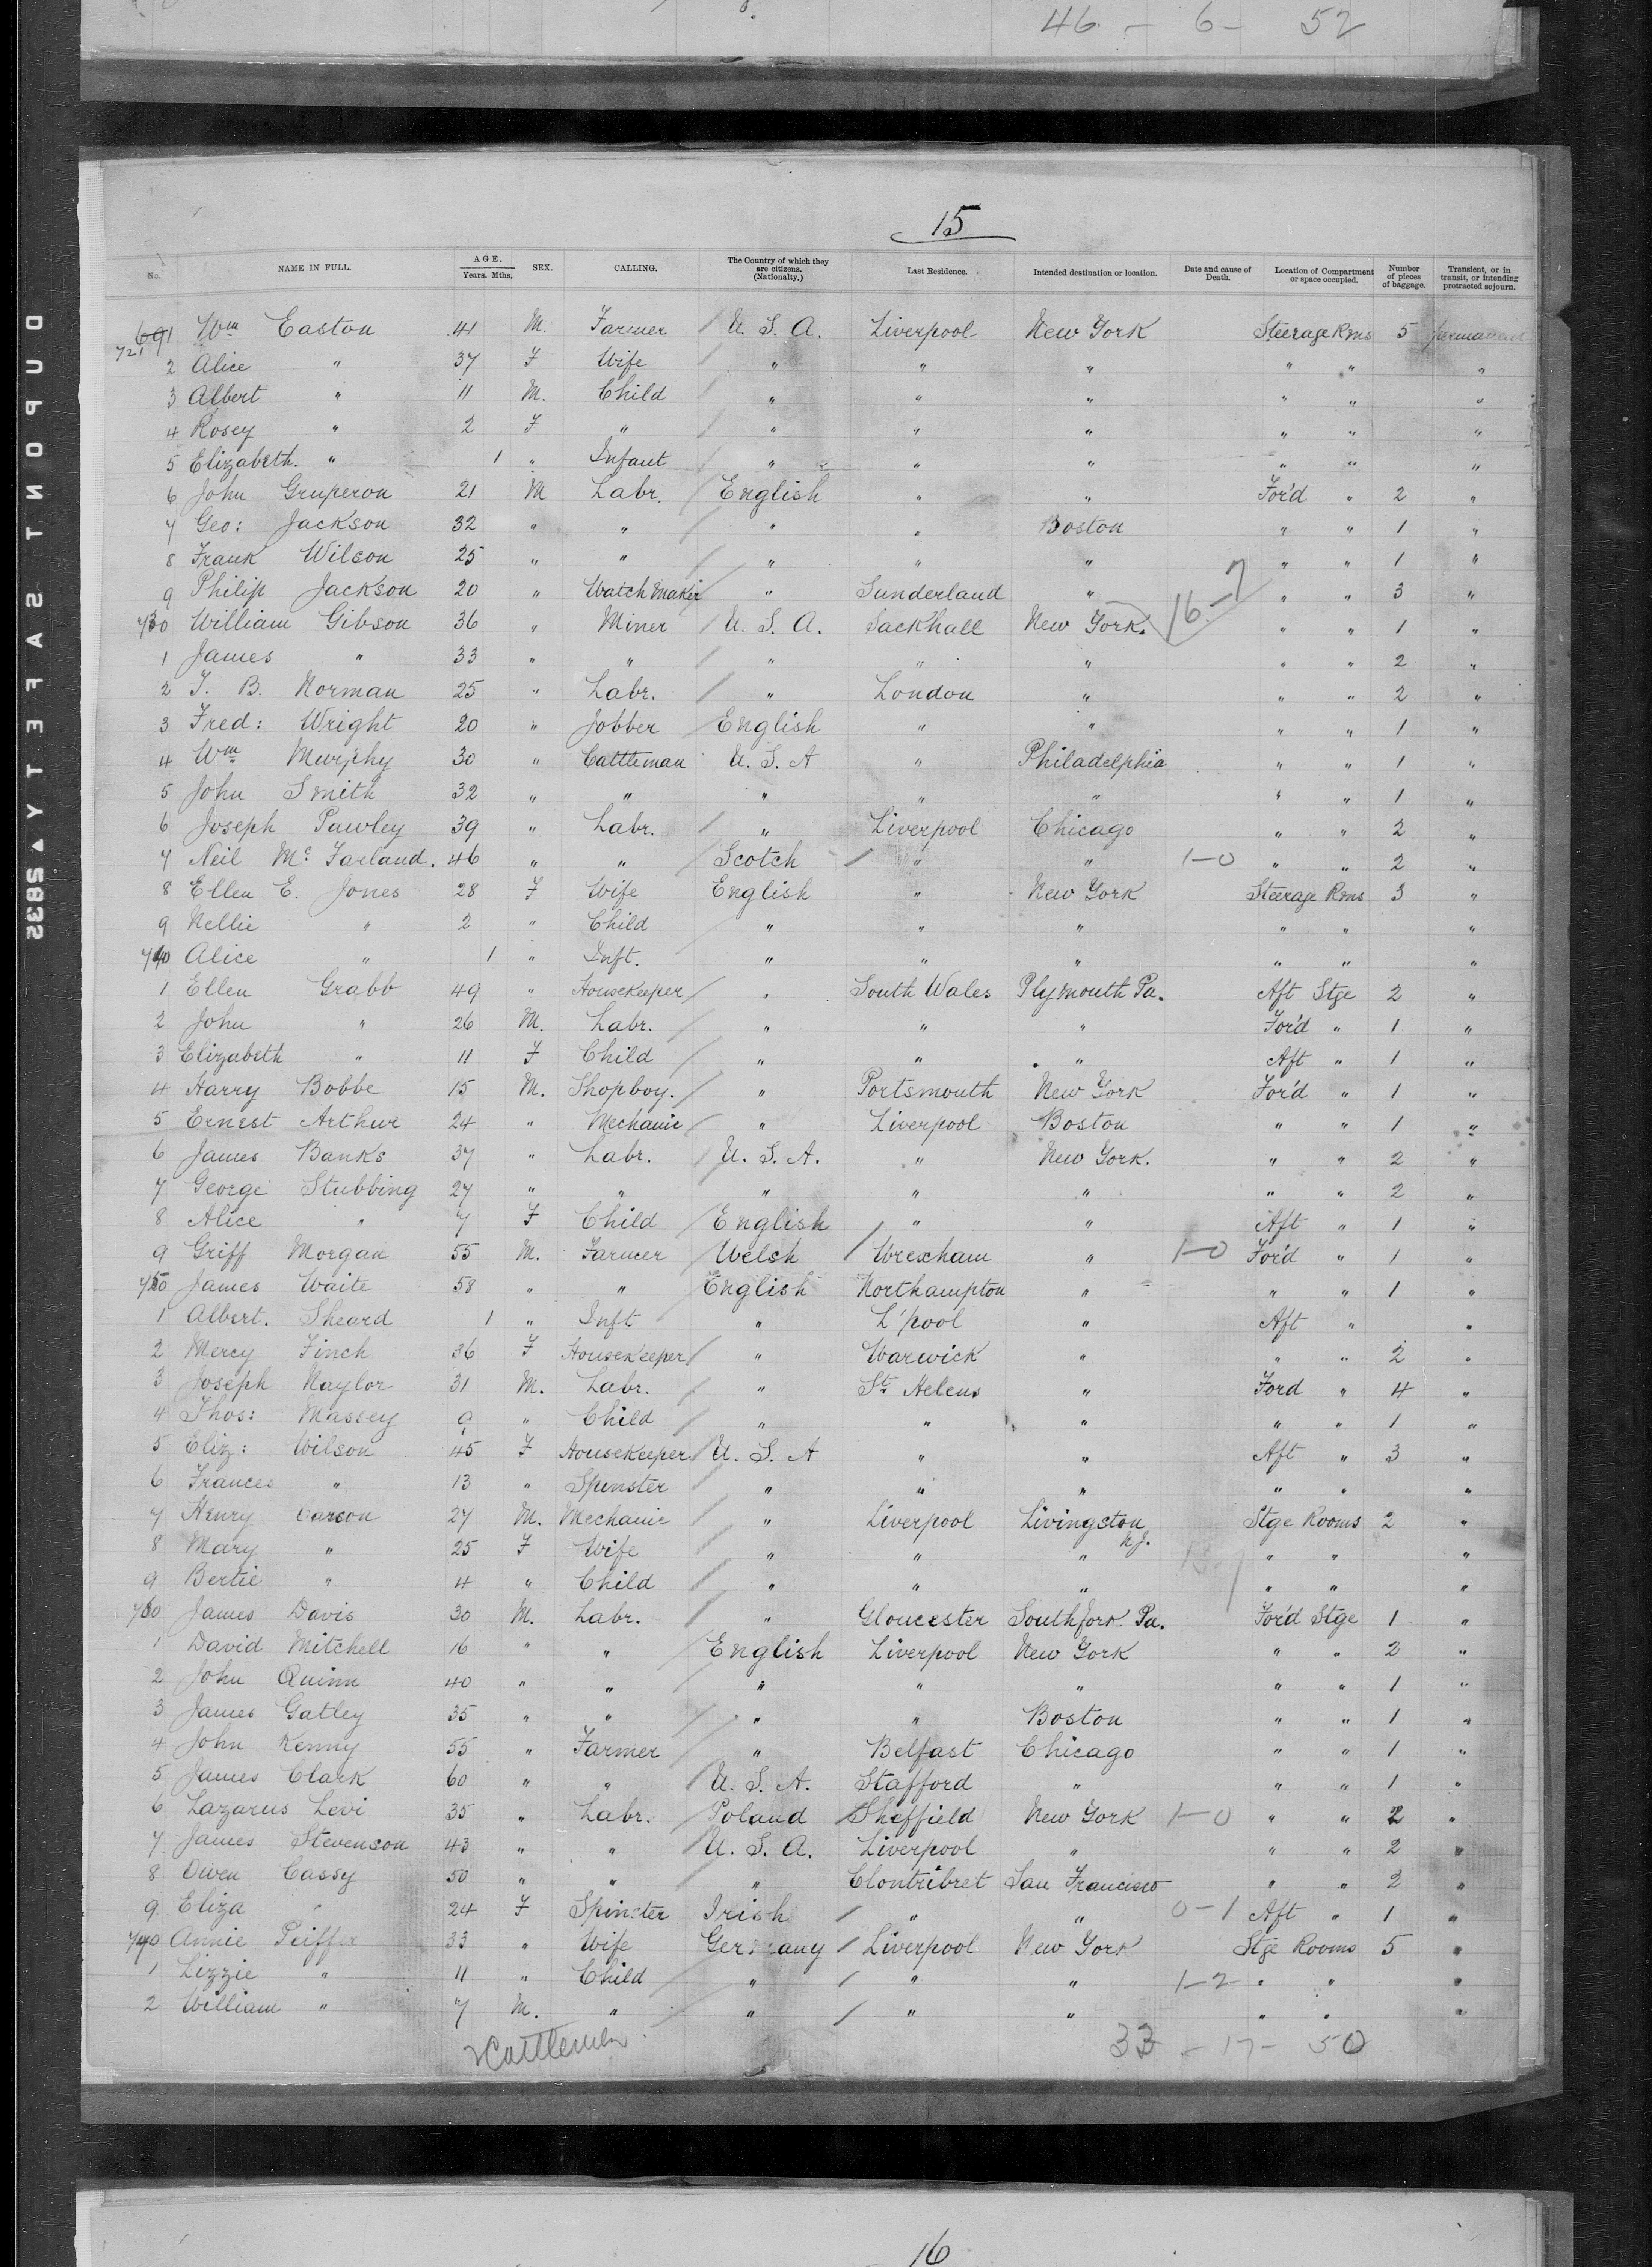 46 - 6 - 52
15
No. NAME IN FULL. AGE. Years. Mths. SEX. CALLING. The Country of which they are citizens. (Nationalty.) Last Residence. Intended destination or location. Date and cause of Death. Location of Compartment or space occupied. Number of pieces of baggage. Transient, or in transit, or intending protracted sojourn.
691 721 Wm Easton 41 M. Farmer / U. S. A. Liverpool New York Steerage Rms 5 permanent
2 Alice " 37 F Wife / " " " " " "
3 Albert " 11 M. Child / " " " " " "
4 Rosey " 2 F " / " " " " " "
5 Elizabeth. " 1 " Infant / " " " " " "
6 John Gruperon 21 M Labr. / English " " For'd " 2 "
7 Geo: Jackson 32 " " / " " Boston " " 1 "
8 Frank Wilson 25 " " / " " " " " 1 "
9 Philip Jackson 20 " Watch Maker / " Sunderland " 16-7 " " 3 "
730 William Gibson 36 " Miner / U. S. A. Sackhall New York. " " 1 "
1 James " 33 " " / " " " " " 2 "
2 T. B. Norman 25 " Labr. / " London " " " 2 "
3 Fred: Wright 20 " Jobber / English " " " " 1 "
4 Wm Murphy 30 " Cattleman U. S. A " Philadelphia " " 1 "
5 John Smith 32 " " " " " " " 1 "
6 Joseph Pawley 39 " Labr. / " Liverpool Chicago " " 2 "
7 Neil Mc Farland. 46 " " / Scotch / " " 1-0 " " 2 "
8 Ellen E. Jones 28 F Wife English " New York Steerage Rms 3 "
9 Nellie " 2 " Child " " " " " "
740 Alice " 1 " Inft. " " " " " "
1 Ellen Grabb 49 " Housekeeper / " South Wales Plymouth Pa. Aft Stge 2 "
2 John " 26 M. Labr. / " " " For'd " 1 "
3 Elizabeth " 11 F Child / " " " Aft " 1 "
4 Harry Bobbe 15 M. Shopboy. / " Portsmouth New York For'd " 1 "
5 Ernest Arthur 24 " Mechanic / " Liverpool Boston " " 1 "
6 James Banks 37 " Labr. / U. S. A. " New York. " " 2 "
7 George Stubbing 27 " " " " " " " 2 "
8 Alice " 7 F Child / English / " " Aft " 1 "
9 Griff Morgan 55 M. Farmer / Welsh / Wrexham " 1-0 For'd " 1 "
750 James Waite 58 " " English Northampton " " " 1 "
1 Albert. Sheard 1 " Inft " L'pool " Aft " "
2 Mercy Finch 36 F Housekeeper / " Warwick " " " 2 "
3 Joseph Naylor 31 M. Labr. / " St. Helens " Ford " 4 "
4 Thos: Massey 9 " Child / " " " " " 1 "
5 Eliz: Wilson 45 F Housekeeper / U. S. A " " Aft " 3 "
6 Frances " 13 " Spinster / " " " " " "
7 Henry Carson 27 M. Mechanic / " Liverpool Livingston N.J. Stge Rooms 2 "
8 Mary " 25 F Wife / " " " " " "
9 Bertie " 4 " Child / " " " " " "
760 James Davis 30 M. Labr. / " Gloucester Southfork Pa. For'd Stge 1 "
1 David Mitchell 16 " " / English Liverpool New York " " 2 "
2 John Quinn 40 " " / " " " " " 1 "
3 James Gatley 35 " " / " " Boston " " 1 "
4 John Kenny 55 " Farmer / " Belfast Chicago " " 1 "
5 James Clark 60 " " / U. S. A. Stafford " " " 1 "
6 Lazarus Levi 35 " Labr. / Poland / Sheffield New York 1-0 " " 2 "
7 James Stevenson 43 " " / U. S. A. Liverpool " " " 2 "
8 Owen Cassy 50 " " / " Clontribret San Francisco " " 2 "
9 Eliza " 24 F Spinster Irish / " " 0-1 Aft " 1 "
770 Annie Peiffer 33 " Wife Germany / Liverpool New York Stge Rooms 5 "
1 Lizzie " 11 " Child / " / " " 1-2 " " "
2 William " 7 M. " / " / " " " " "
2 Cattlemen 33 - 17 - 50
16
DUPONT SAFETY 5832